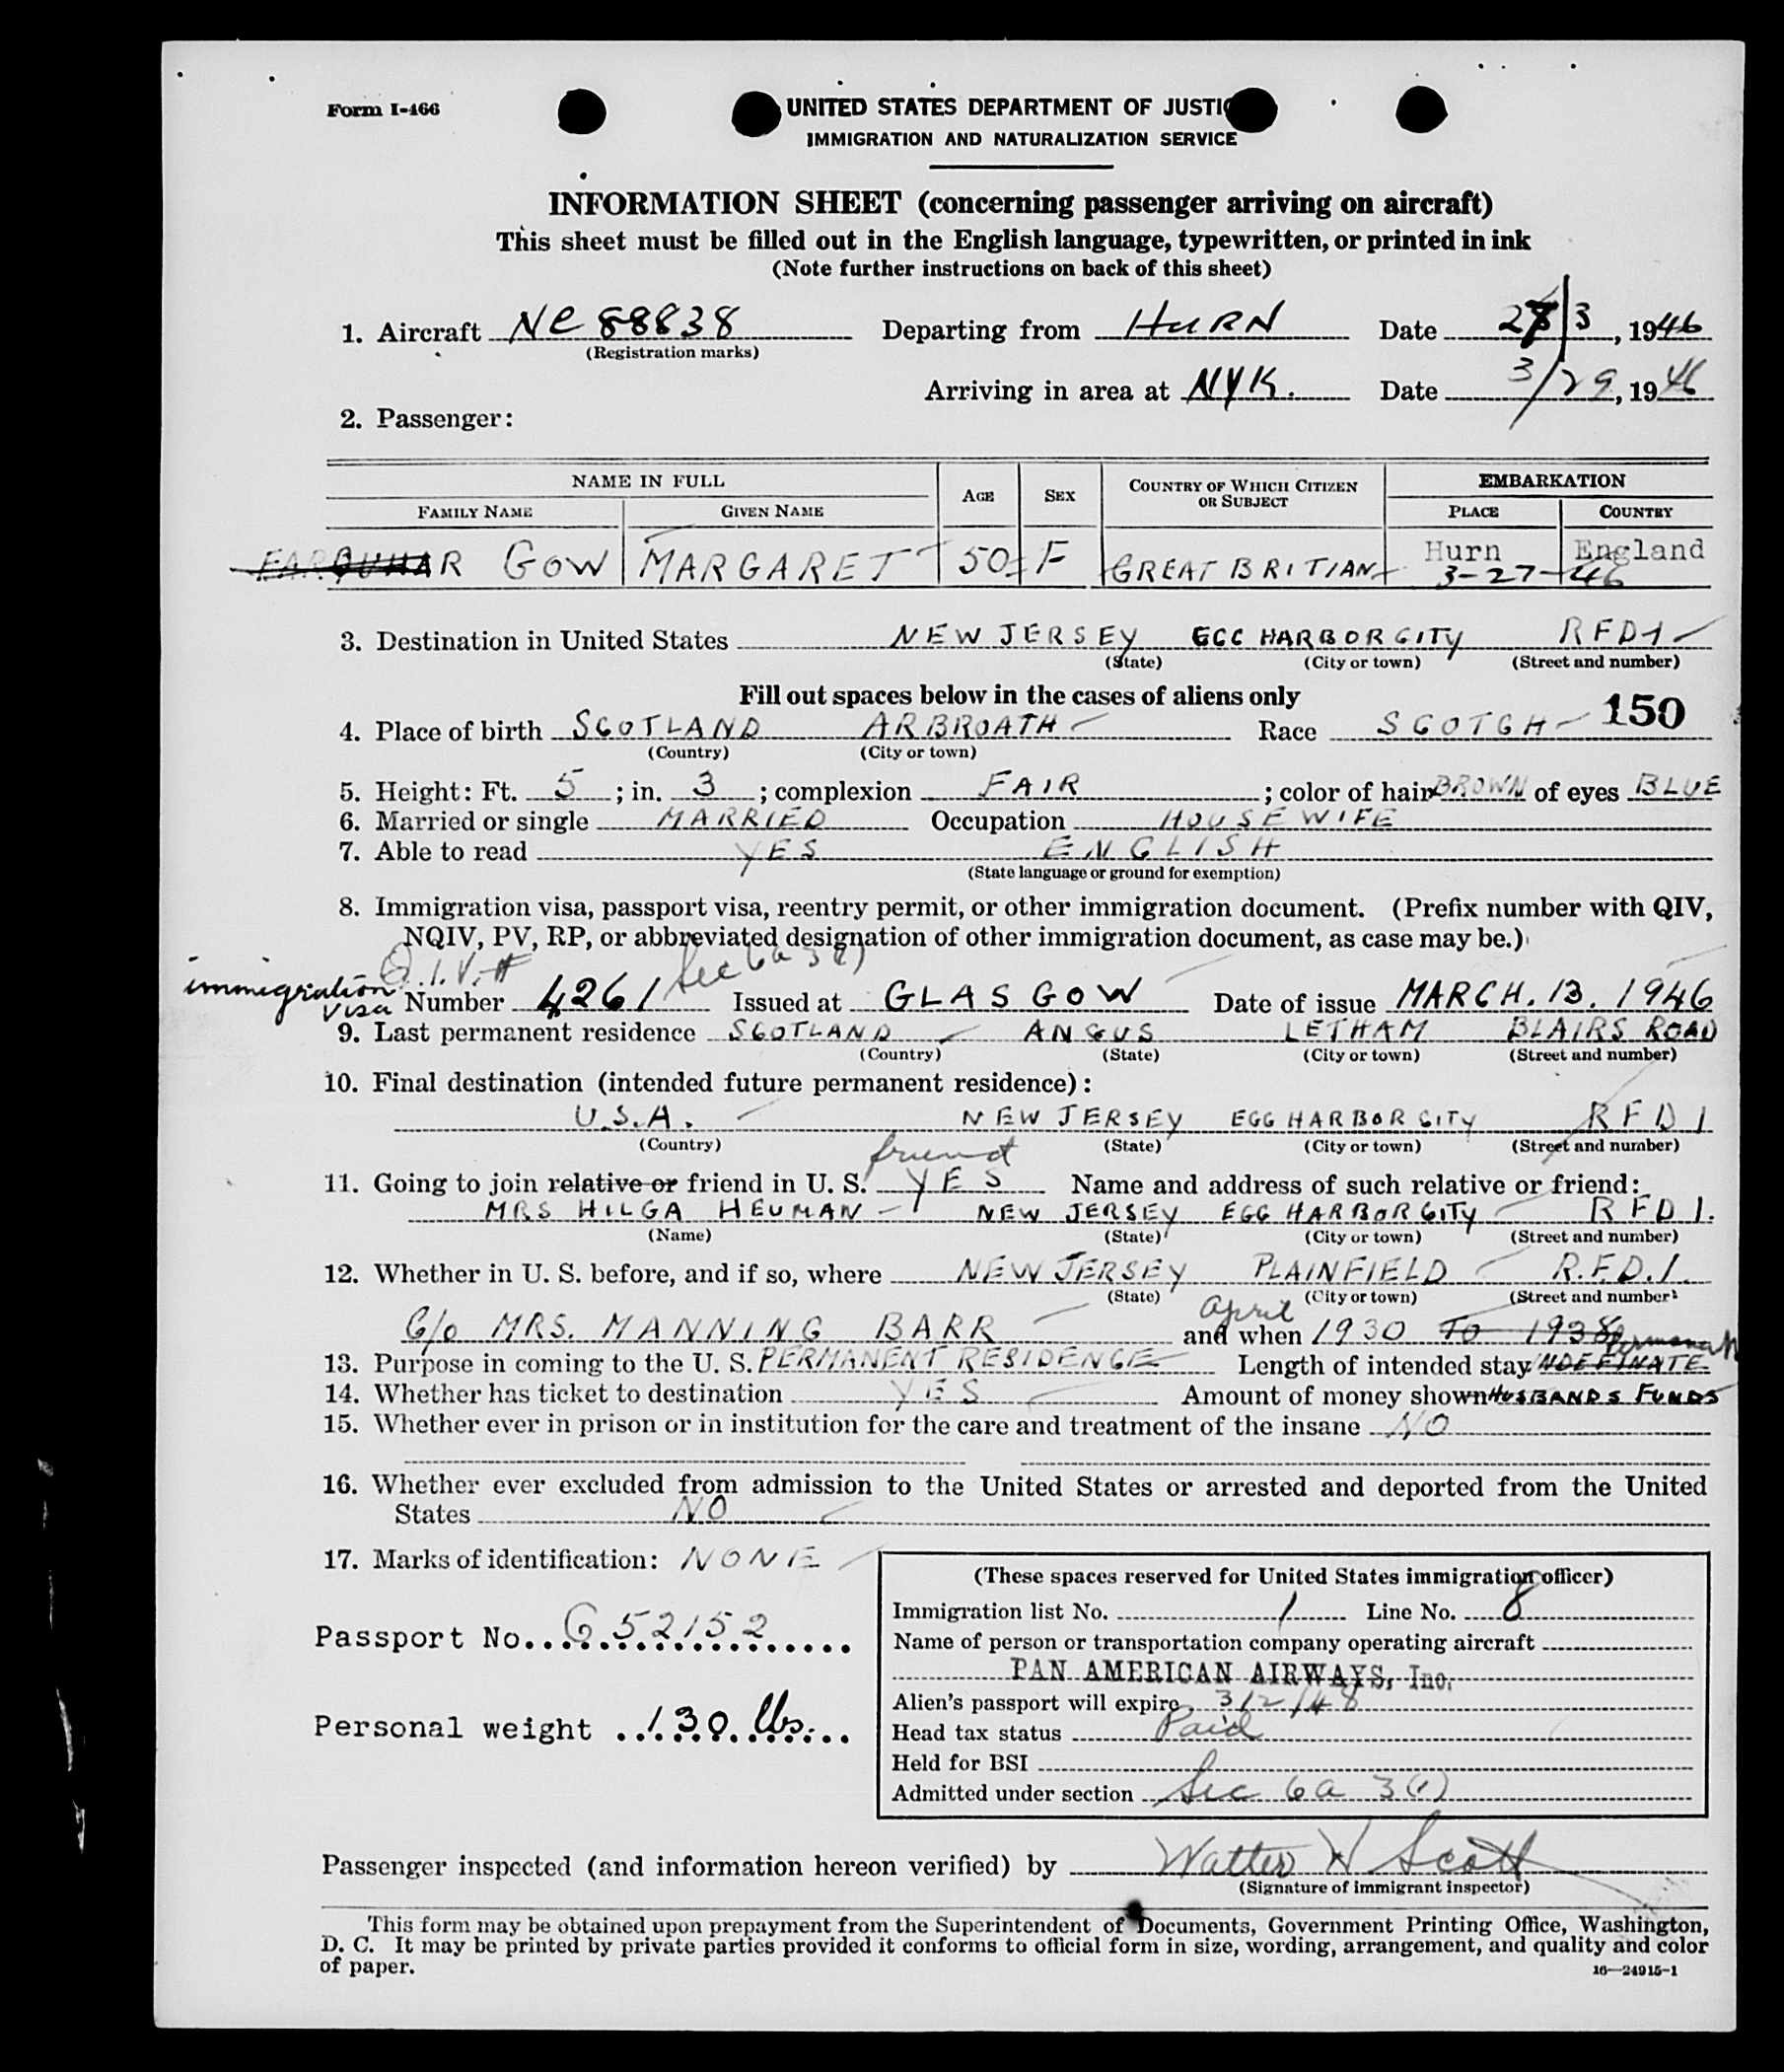 Form I-466
UNITED STATES DEPARTMENT OF JUSTIC
IMMIGRATION AND NATURALIZATION SERVICE
INFORMATION SHEET (concerning passenger arriving on aircraft)
This sheet must be filled out in the English language, typewritten, or printed in ink
(Note further instructions on back of this sheet)
1. Aircraft NC 88838 Departing from HURN Date 28/3, 1946
(Registration marks)
Arriving in area at NYK. Date 3/29, 1946
2. Passenger:
NAME IN FULL AGE SEX COUNTRY OF WHICH CITIZEN OR SUBJECT EMBARKATION
FAMILY NAME GIVEN NAME PLACE COUNTRY
FARQUHAR GOW MARGARET 50 F GREAT BRITIAN Hurn England
3-27-46
3. Destination in United States NEW JERSEY EGG HARBOR CITY RFD 1
(State) (City or town) (Street and number)
Fill out spaces below in the cases of aliens only
150
4. Place of birth SCOTLAND ARBROATH Race SCOTCH
(Country) (City or town)
5. Height: Ft. 5; in. 3; complexion FAIR; color of hair BROWN of eyes BLUE
6. Married or single MARRIED Occupation HOUSEWIFE
7. Able to read YES ENGLISH
(State language or ground for exemption)
8. Immigration visa, passport visa, reentry permit, or other immigration document. (Prefix number with QIV,
NQIV, PV, RP, or abbreviated designation of other immigration document, as case may be.)
immigration visa Q.I.V.# Sec 6a 3(1)
Number 4261 Issued at GLASGOW Date of issue MARCH. 13. 1946
9. Last permanent residence SCOTLAND ANGUS LETHAM BLAIRS ROAD
(Country) (State) (City or town) (Street and number)
10. Final destination (intended future permanent residence):
U.S.A. NEW JERSEY EGG HARBOR CITY RFD 1
(Country) (State) (City or town) (Street and number)
friend
11. Going to join relative or friend in U. S. YES Name and address of such relative or friend:
MRS HILGA HEUMAN NEW JERSEY EGG HARBOR CITY RFD 1.
(Name) (State) (City or town) (Street and number)
12. Whether in U. S. before, and if so, where NEW JERSEY PLAINFIELD R.F.D. 1.
(State) (City or town) (Street and number)
C/o MRS. MANNING BARR and when April 1930 TO 1938
permanent
13. Purpose in coming to the U. S. PERMANENT RESIDENCE Length of intended stay INDEFINATE
14. Whether has ticket to destination YES Amount of money shown HUSBANDS FUNDS
15. Whether ever in prison or in institution for the care and treatment of the insane NO
16. Whether ever excluded from admission to the United States or arrested and deported from the United
States NO
17. Marks of identification: NONE
Passport No. G 52152
Personal weight 130 lbs.
(These spaces reserved for United States immigration officer)
Immigration list No. 1 Line No. 8
Name of person or transportation company operating aircraft
PAN AMERICAN AIRWAYS, Inc.
Alien's passport will expire 3/2/48
Head tax status Paid
Held for BSI
Admitted under section Sec 6a 3(1)
Passenger inspected (and information hereon verified) by Walter W Scott
(Signature of immigrant inspector)
This form may be obtained upon prepayment from the Superintendent of Documents, Government Printing Office, Washington,
D. C. It may be printed by private parties provided it conforms to official form in size, wording, arrangement, and quality and color
of paper.
16—24915-1